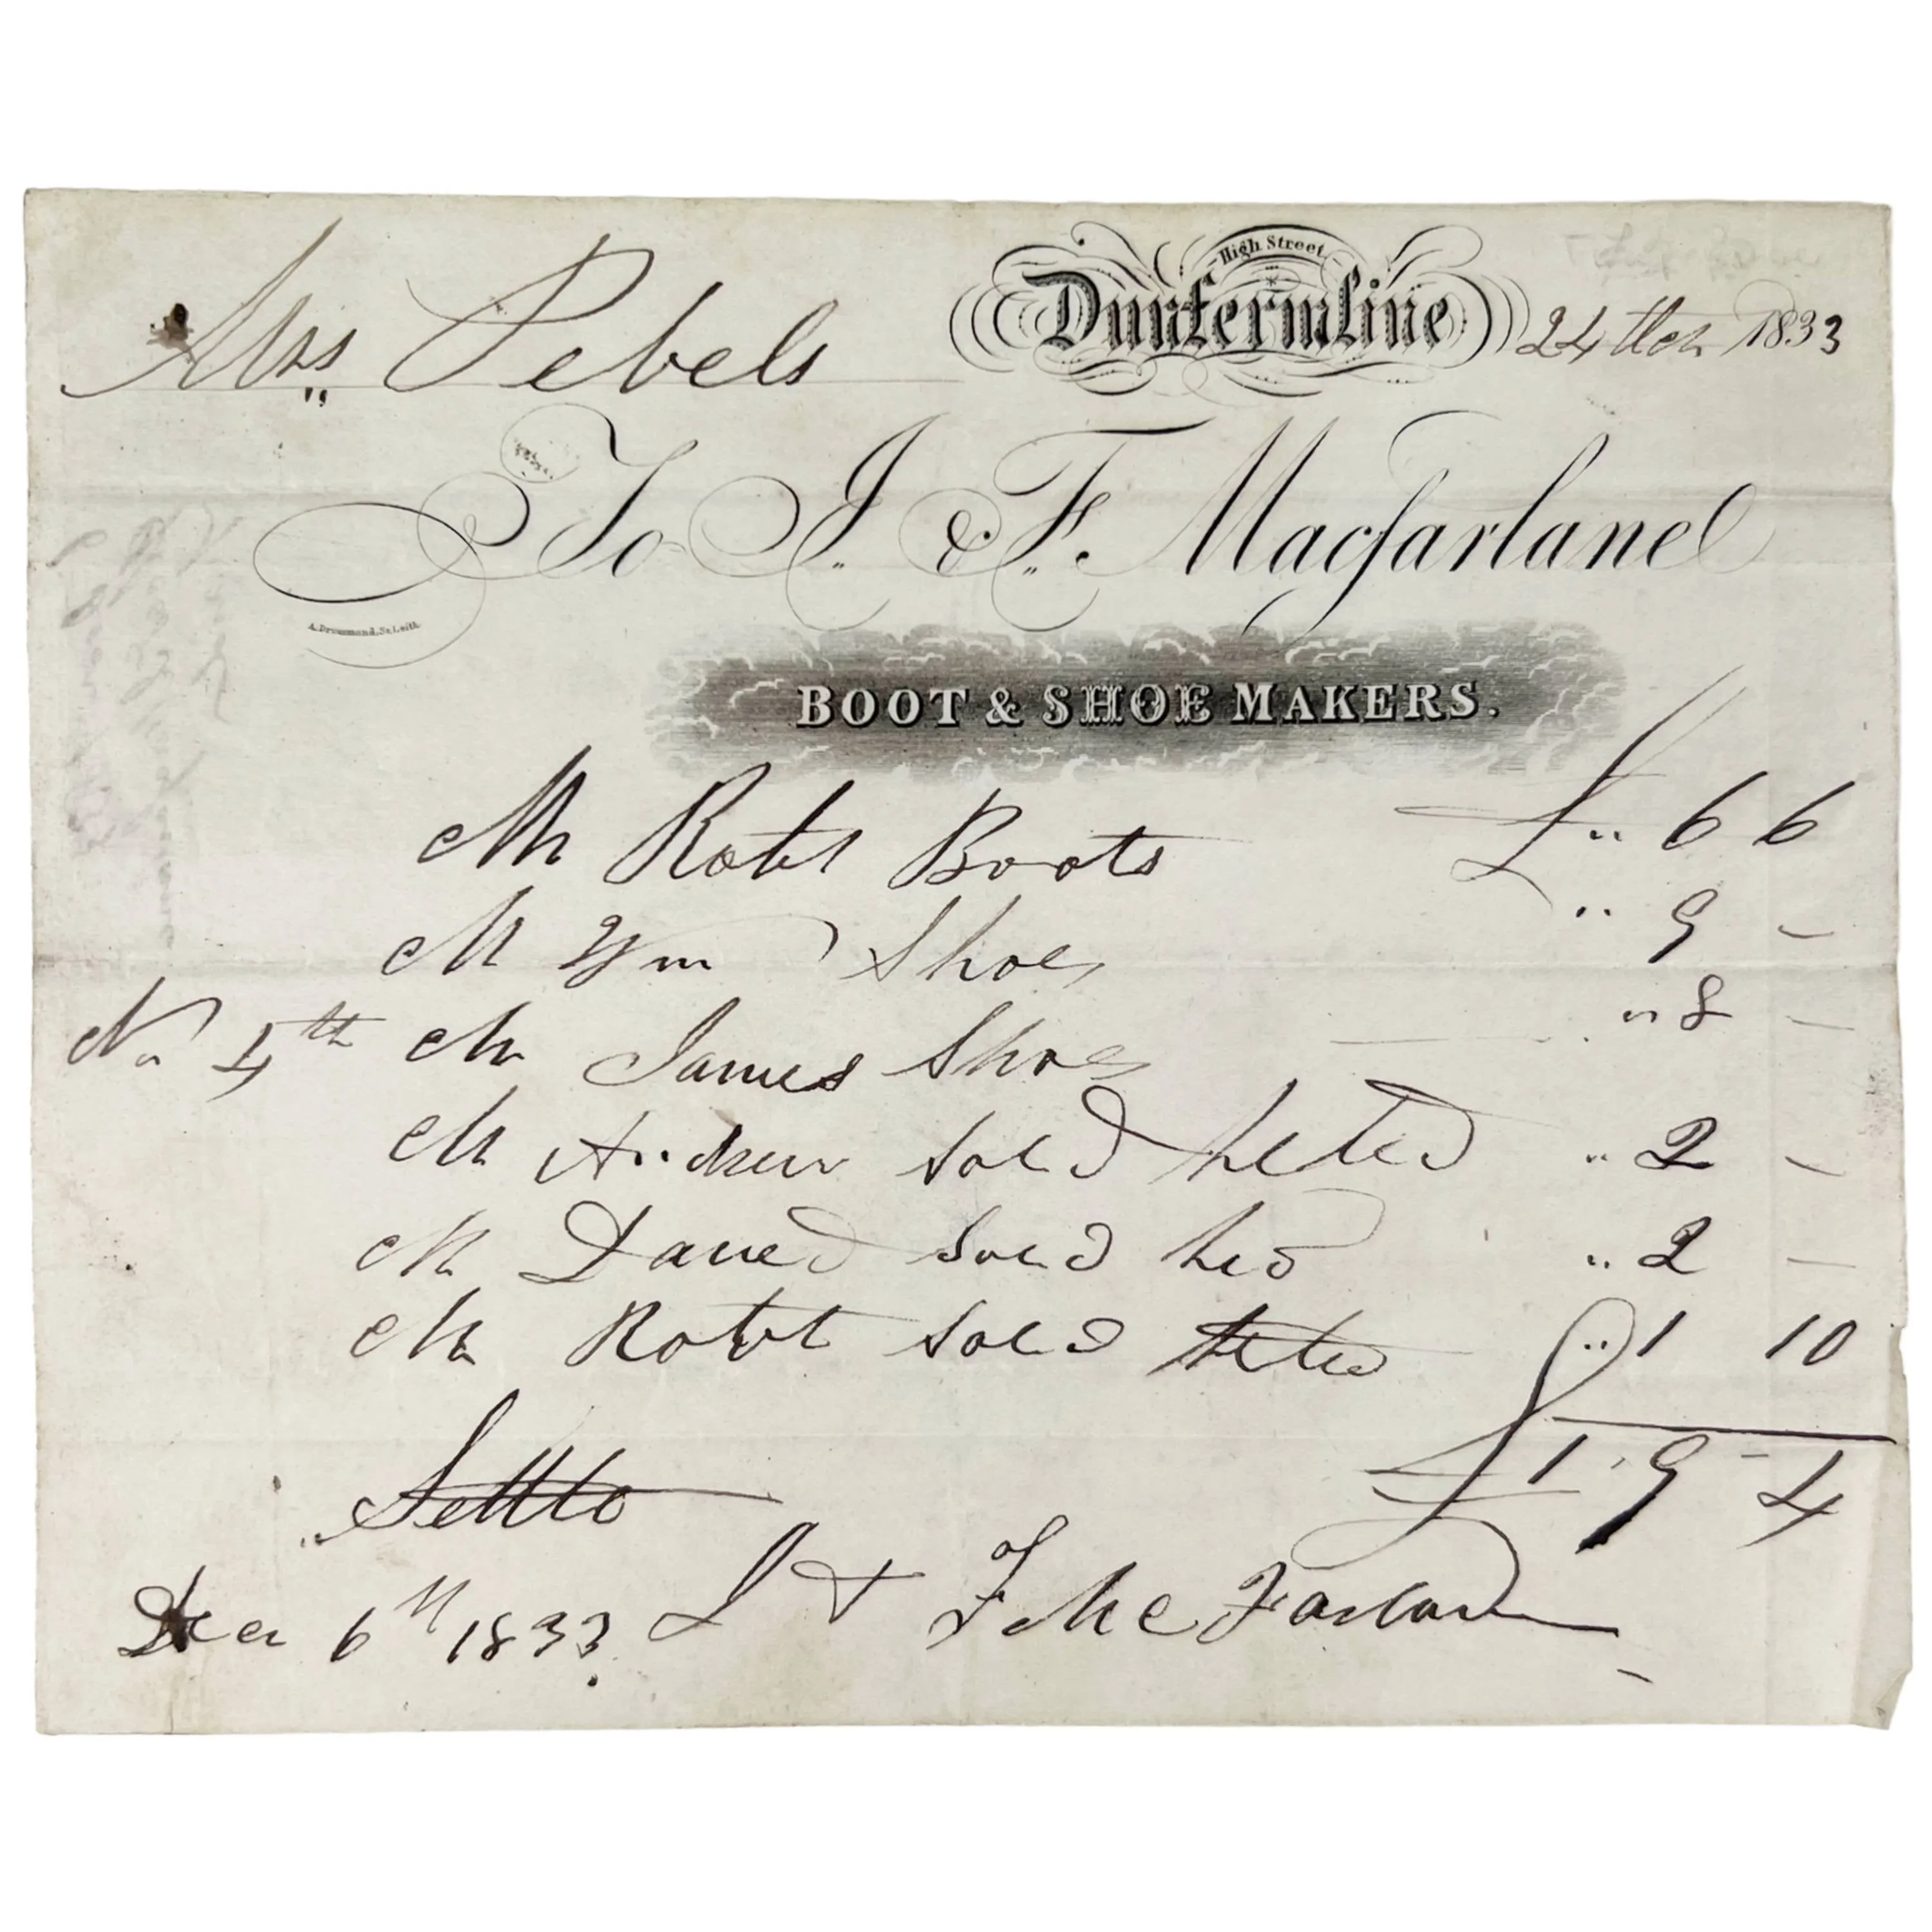 High Street
Mrs Pebels Dunfermline 24 1833
To J. & F. Macfarlane
A. Drummond, Sc. Leith.
BOOT & SHOE MAKERS.
Mr Robt Boots £ " 6 6
Mr Wm Shoes " 9 -
No 4th Mr James Shoes " 8 -
Mr Andrew Soled heled " 2 -
Mr Daved Soled hed " 2 -
Mr Robt Soled heled " 1 10
£ 1 . 9 - 4
Dec 6th 1833 J & F McFarlane